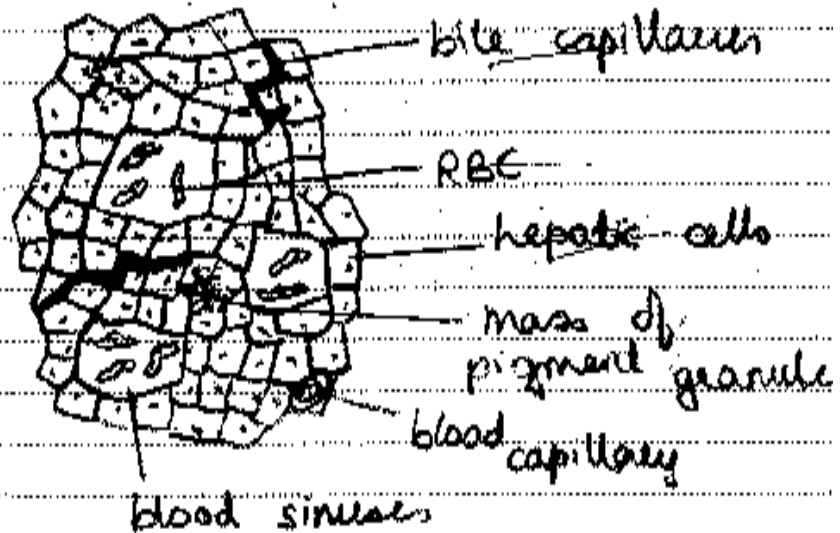 bile capillaries
RBC
hepatic cells
mass of
pigment granule
blood
capillary
blood sinuses